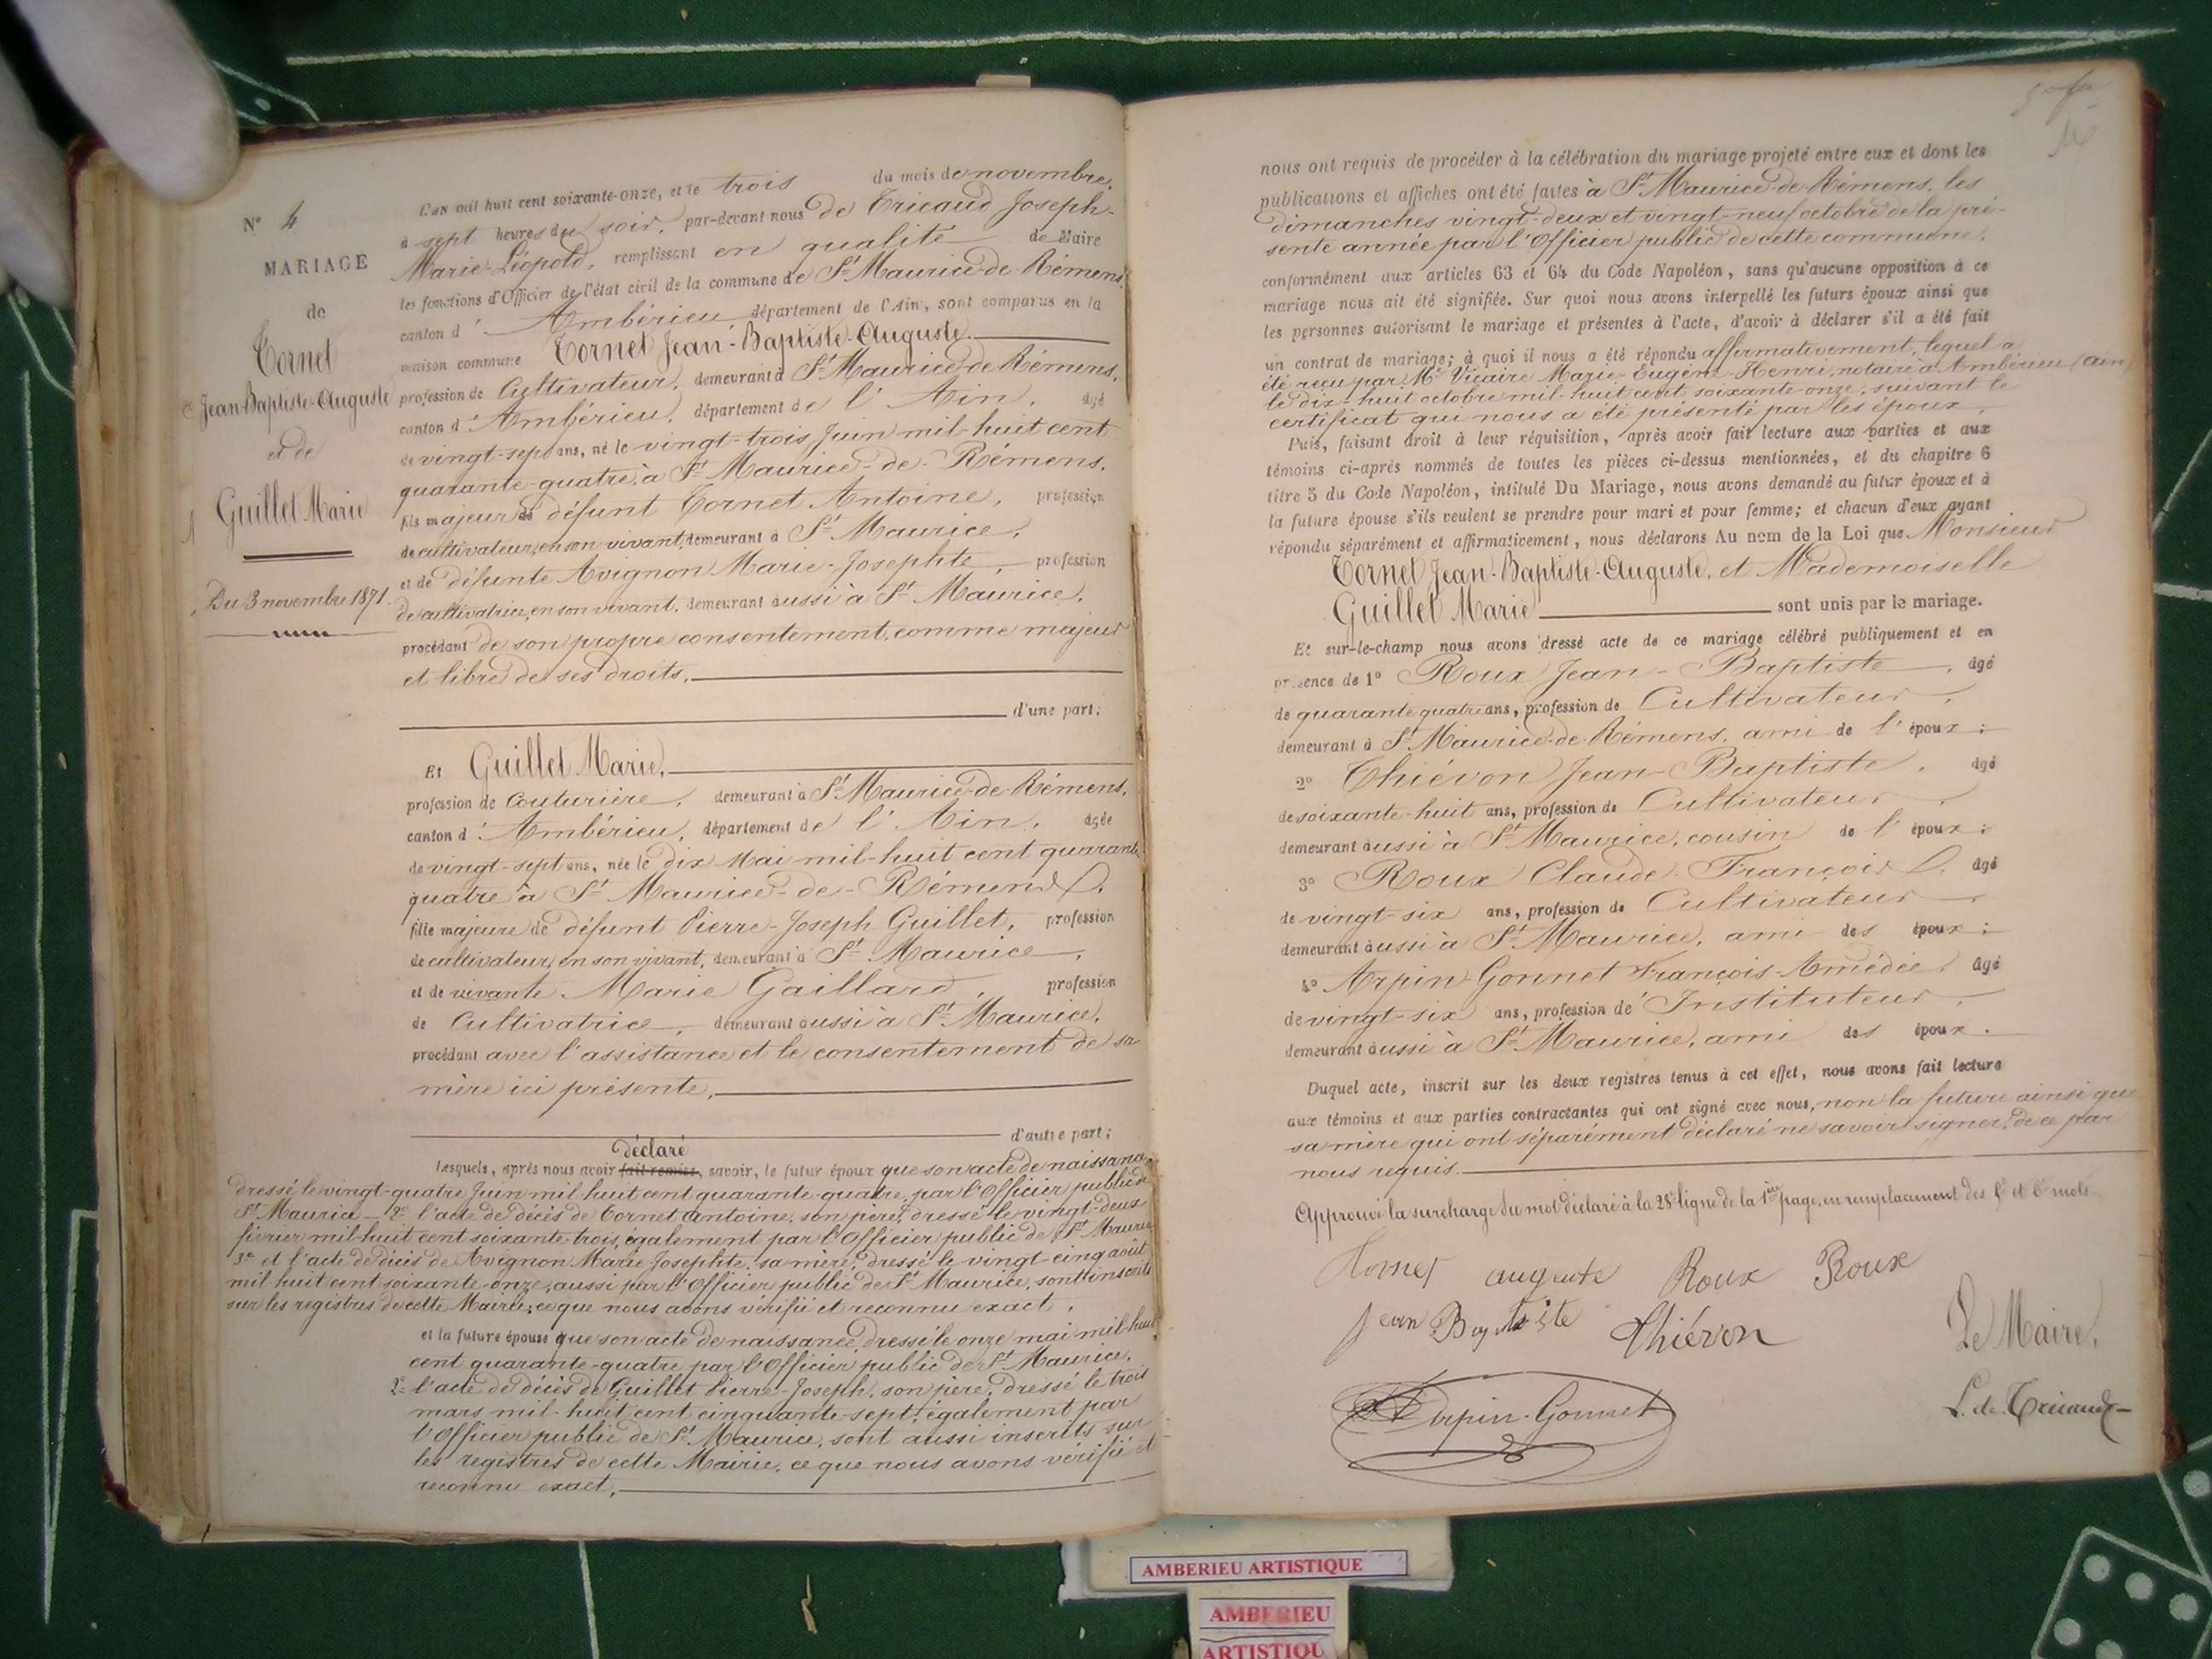 N° 4
MARIAGE
de
Tornet
Jean-Baptiste-Auguste
et de
Guillet Marie
Du 3 novembre 1871.
L'an mil huit cent soixante-onze, et le trois du mois de novembre,
à sept heures du soir, par-devant nous de Tricaud Joseph-
Marie-Léopold, remplissant en qualité de Maire
les fonctions d'Officier de l'état civil de la commune de St Maurice-de-Rémens,
canton d'Ambérieu département de l'Ain, sont comparus en la
maison commune Tornet Jean-Baptiste-Auguste
profession de Cultivateur, demeurant à St Maurice-de-Rémens,
canton d'Ambérieu, département de l'Ain, âgé
de vingt-sept ans, né le vingt-trois Juin mil-huit cent
quarante-quatre, à St Maurice-de-Rémens,
fils majeur de défunt Tornet Antoine, profession
de cultivateur, en son vivant, demeurant à St Maurice,
et de défunte Avignon Marie-Josephte, profession
de cultivatrice, en son vivant, demeurant aussi à St Maurice,
procédant de son propre consentement, comme majeur
et libre de ses droits,
d'une part;
Et Guillet Marie,
profession de Couturière, demeurant à St Maurice-de-Rémens,
canton d'Ambérieu, département de l'Ain, âgée
de vingt-sept ans, née le dix Mai mil-huit cent quarante
quatre à St Maurice-de-Rémens,
fille majeure de défunt Pierre-Joseph Guillet, profession
de cultivateur, en son vivant, demeurant à St Maurice,
et de vivante Marie Gaillard, profession
de Cultivatrice, demeurant aussi à St Maurice,
procédant avec l'assistance et le consentement de sa
mère ici présente,
d'autre part;
déclaré
Lesquels, après nous avoir fait remise, savoir, le futur époux que son acte de naissance
dressé le vingt-quatre Juin mil huit cent quarante-quatre, par l'Officier public de
St Maurice - 2° l'acte de décès de Tornet Antoine, son père, dressé le vingt-deux
février mil-huit cent soixante-trois, également par l'Officier public de St Maurice
3° et l'acte de décès de Avignon Marie Josephte, sa mère, dressé le vingt-cinq août
mil huit cent soixante-onze, aussi par l'Officier public de St Maurice, sont inscrits
sur les registres de cette Mairie, ce que nous avons vérifié et reconnu exact,
et la future épouse que son acte de naissance, dressé le onze mai mil-huit
cent quarante-quatre par l'Officier public de St Maurice,
2° l'acte de décès de Guillet Pierre-Joseph, son père, dressé le trois
mars mil huit cent cinquante-sept, également par
l'Officier public de St Maurice, sont aussi inscrits sur
les registres de cette Mairie, ce que nous avons vérifié et
reconnu exact,
nous ont requis de procéder à la célébration du mariage projeté entre eux et dont les
publications et affiches ont été faites à St Maurice-de-Rémens, les
dimanches vingt-deux et vingt-neuf octobre de la pré-
sente année par l'Officier public de cette commune,
conformément aux articles 63 et 64 du Code Napoléon, sans qu'aucune opposition à ce
mariage nous ait été signifiée. Sur quoi nous avons interpellé les futurs époux ainsi que
les personnes autorisant le mariage et présentes à l'acte, d'avoir à déclarer s'il a été fait
un contrat de mariage; à quoi il nous a été répondu affirmativement, lequel a
été reçu par Me Vicaire Marie-Eugène-Henri, notaire à Ambérieu (Ain)
le dix-huit octobre mil-huit cent soixante-onze, suivant le
certificat qui nous a été présenté par les époux,
Puis, faisant droit à leur réquisition, après avoir fait lecture aux parties et aux
témoins ci-après nommés de toutes les pièces ci-dessus mentionnées, et du chapitre 6
titre 5 du Code Napoléon, intitulé Du Mariage, nous avons demandé au futur époux et à
la future épouse s'ils veulent se prendre pour mari et pour femme; et chacun d'eux ayant
répondu séparément et affirmativement, nous déclarons Au nom de la Loi que Monsieur
Tornet Jean-Baptiste-Auguste, et Mademoiselle
Guillet Marie sont unis par le mariage.
Et sur-le-champ nous avons dressé acte de ce mariage célébré publiquement et en
présence de 1° Roux Jean-Baptiste, âgé
de quarante quatre ans, profession de Cultivateur,
demeurant à St Maurice-de-Rémens, ami de l'époux;
2° Thiévon Jean-Baptiste, âgé
de soixante-huit ans, profession de Cultivateur,
demeurant aussi à St Maurice, cousin de l'époux;
3° Roux Claude-François, âgé
de vingt-six ans, profession de Cultivateur
demeurant aussi à St Maurice, ami des époux;
4° Arpin-Gonnet François-Amédée, âgé
de vingt-six ans, profession de Instituteur,
demeurant aussi à St Maurice, ami des époux.
Duquel acte, inscrit sur les deux registres tenus à cet effet, nous avons fait lecture
aux témoins et aux parties contractantes qui ont signé avec nous, non la future ainsi que
sa mère qui ont séparément déclaré ne savoir signer, de ce par
nous requis.
Approuvé la surcharge du mot déclaré à la 28e ligne de la 1ère page, en remplacement des 5e et 6e mots.
Tornet auguste Roux Roux
jean Baptiste Thiévon
Le Maire,
Arpin-Gonnet
L. de Tricaud
AMBERIEU ARTISTIQUE
AMBERIEU
ARTISTIQU